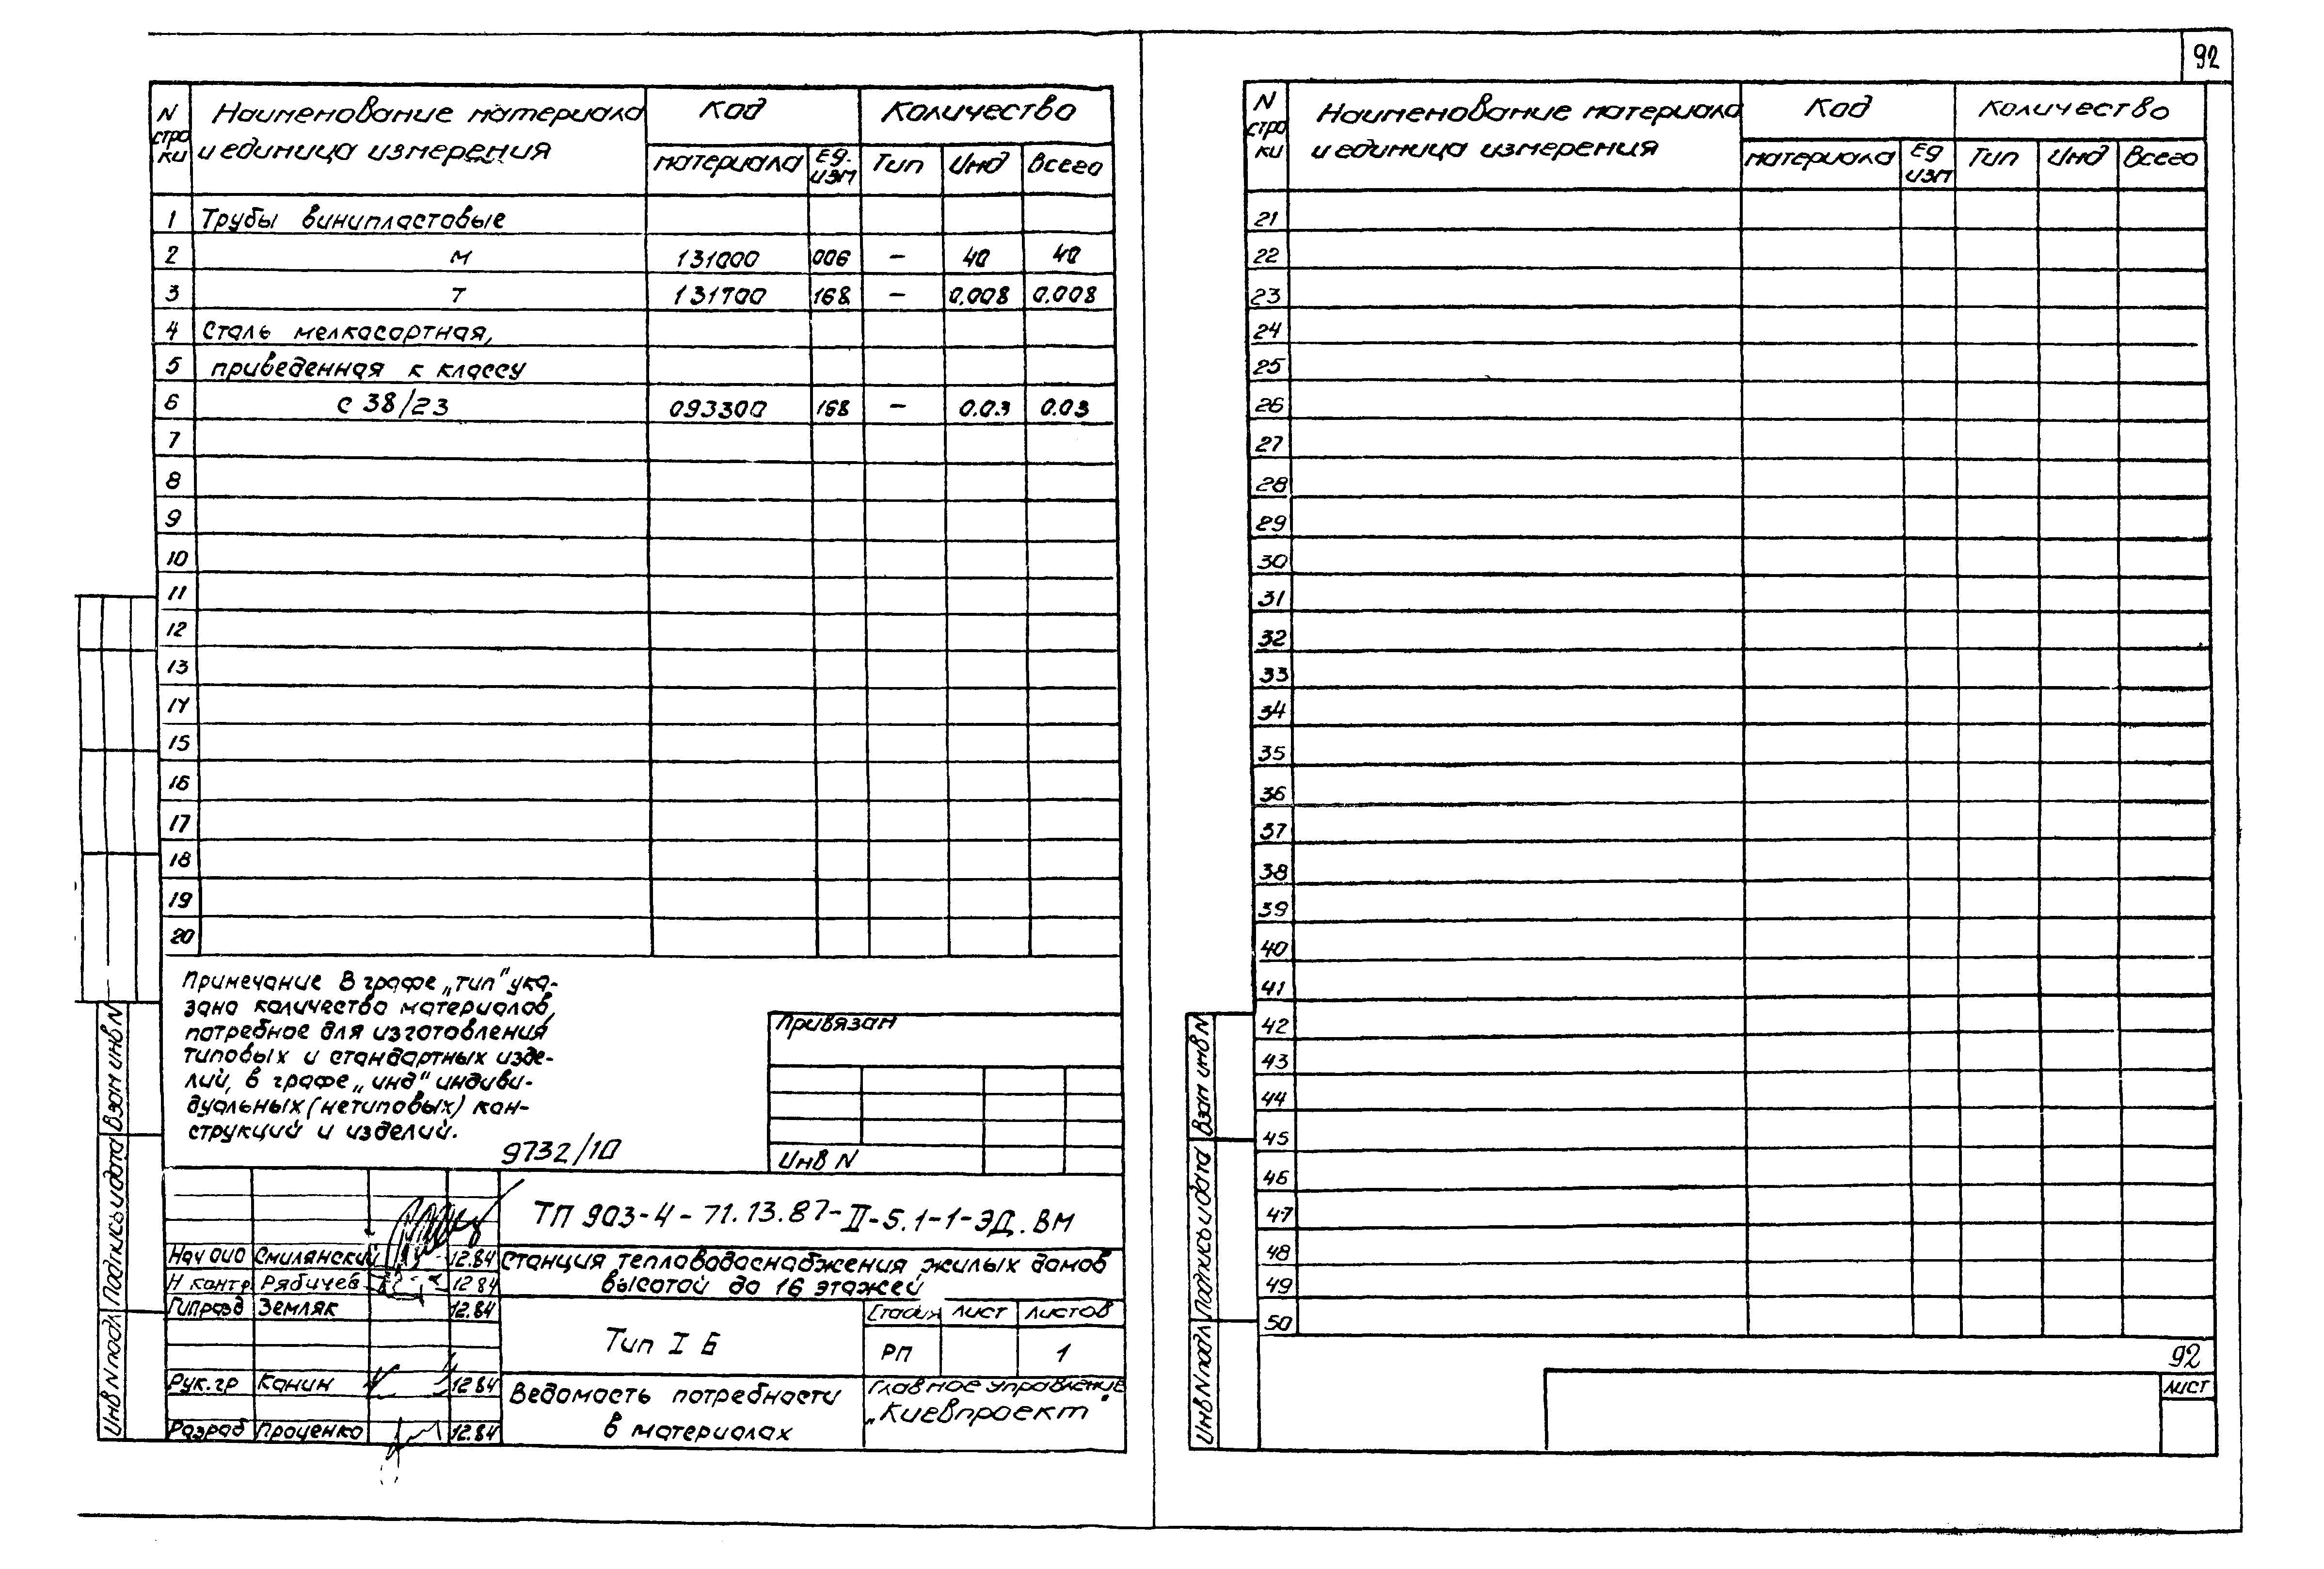 92
N стро ки
Наименование материала и единица измерения
Код
Количество
материала
Ед. изм
Тип
Инд
Всего
1 Трубы винипластовые
2 м 131000 006 – 40 40
3 т 131700 168 – 0,008 0,008
4 Сталь мелкосортная,
5 приведенная к классу
6 С 38/23 093300 168 – 0.03 0.03
7
8
9
10
11
12
13
14
15
16
17
18
19
20
Примечание В графе „тип" ука-
зано количество материалов,
потребное для изготовления
типовых и стандартных изде-
лий, в графе „инд" индиви-
дуальных (нетиповых) кон-
струкций и изделий.
9732/10
Привязан
Инв N
ТП 903-4-71.13.87-II-5.1-1-ЭД.ВМ
Нач ОИО Смилянский 12.84
Н контр Рябичев 12 84
Гип разд Земляк 12.84
Рук. гр Канин 12 84
Разраб Проценко 12.84
Станция тепловодоснабжения жилых домов
высотой до 16 этажей
Тип I Б
Стадия лист листов
РП 1
Ведомость потребности
в материалах
Главное управление
„Киевпроект"
Взам инв N
Подпись и дата
Инв N подл
N стро ки
Наименование материала и единица измерения
Код
Количество
материала
Ед изм
Тип
Инд
Всего
21
22
23
24
25
26
27
28
29
30
31
32
33
34
35
36
37
38
39
40
41
42
43
44
45
46
47
48
49
50
Взам инв N
Подпись и дата
Инв N подл
92
лист